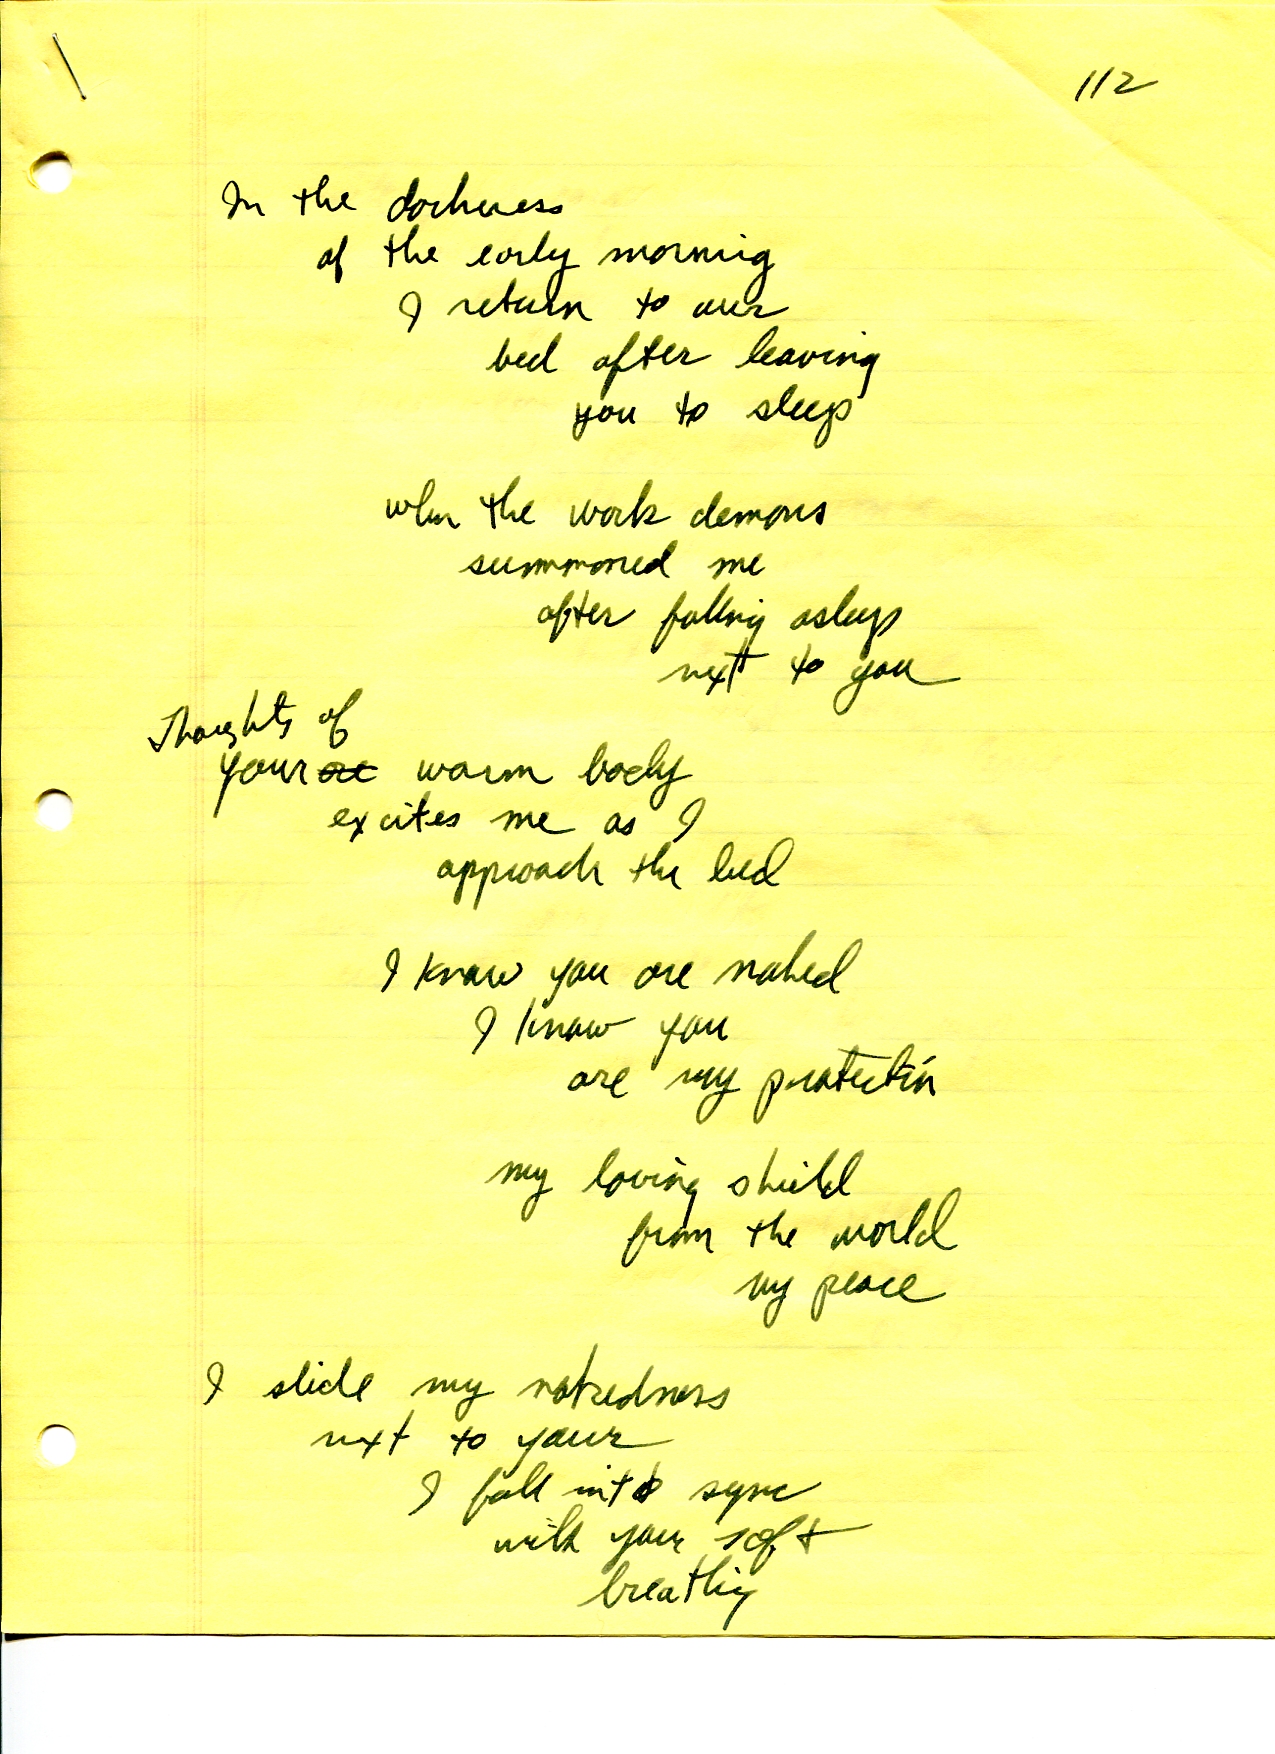 1/2
In the darkness
of the early morning
I return to our
bed after leaving
you to sleep
when the work demons
summoned me
after falling asleep
next to you
Thoughts of
your are warm body
excites me as I
approach the bed
I know you are naked
I know you
are my protection
my loving shield
from the world
my peace
I slide my nakedness
next to your
I fall into sync
with your soft
breathing